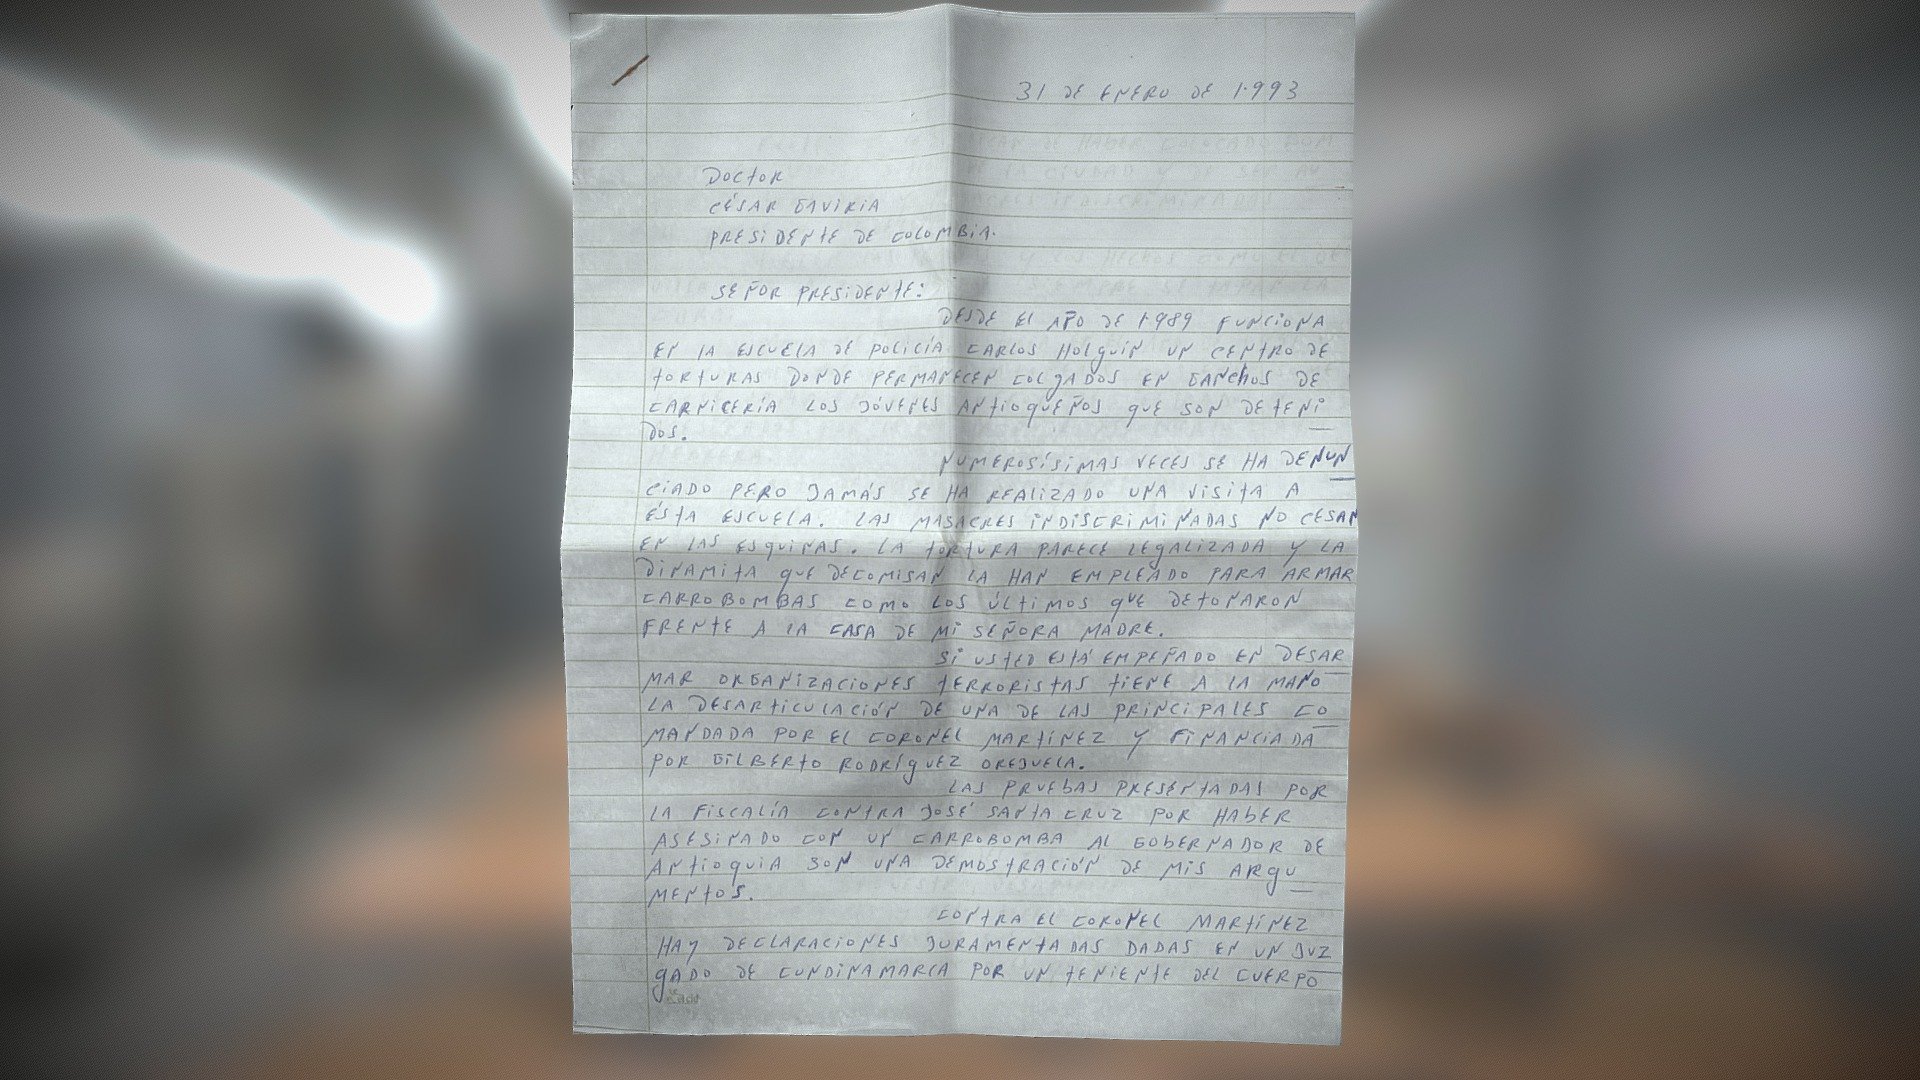 31 DE ENERO DE 1.993
DOCTOR
CÉSAR GAVIRIA
PRESIDENTE DE COLOMBIA.
SEÑOR PRESIDENTE:
DESDE EL AÑO DE 1.989 FUNCIONA
EN LA ESCUELA DE POLICÍA CARLOS HOLGUÍN UN CENTRO DE
TORTURAS DONDE PERMANECEN COLGADOS EN GANCHOS DE
CARNICERÍA LOS JÓVENES ANTIOQUEÑOS QUE SON DETENI
DOS.
NUMEROSÍSIMAS VECES SE HA DENUN
CIADO PERO JAMÁS SE HA REALIZADO UNA VISITA A
ÉSTA ESCUELA. LAS MASACRES INDISCRIMINADAS NO CESAN
EN LAS ESQUINAS. LA TORTURA PARECE LEGALIZADA Y LA
DINAMITA QUE DECOMISAN LA HAN EMPLEADO PARA ARMAR
CARROBOMBAS COMO LOS ÚLTIMOS QUE DETONARON
FRENTE A LA CASA DE MI SEÑORA MADRE.
SI USTED ESTÁ EMPEÑADO EN DESAR
MAR ORGANIZACIONES TERRORISTAS TIENE A LA MANO
LA DESARTICULACIÓN DE UNA DE LAS PRINCIPALES CO
MANDADA POR EL CORONEL MARTÍNEZ Y FINANCIADA
POR GILBERTO RODRÍGUEZ OREJUELA.
LAS PRUEBAS PRESENTADAS POR
LA FISCALÍA CONTRA JOSÉ SANTA CRUZ POR HABER
ASESINADO CON UN CARROBOMBA AL GOBERNADOR DE
ANTIOQUIA SON UNA DEMOSTRACIÓN DE MIS ARGU
MENTOS.
CONTRA EL CORONEL MARTÍNEZ
HAY DECLARACIONES JURAMENTADAS DADAS EN UN JUZ
GADO DE CUNDINAMARCA POR UN TENIENTE DEL CUERPO